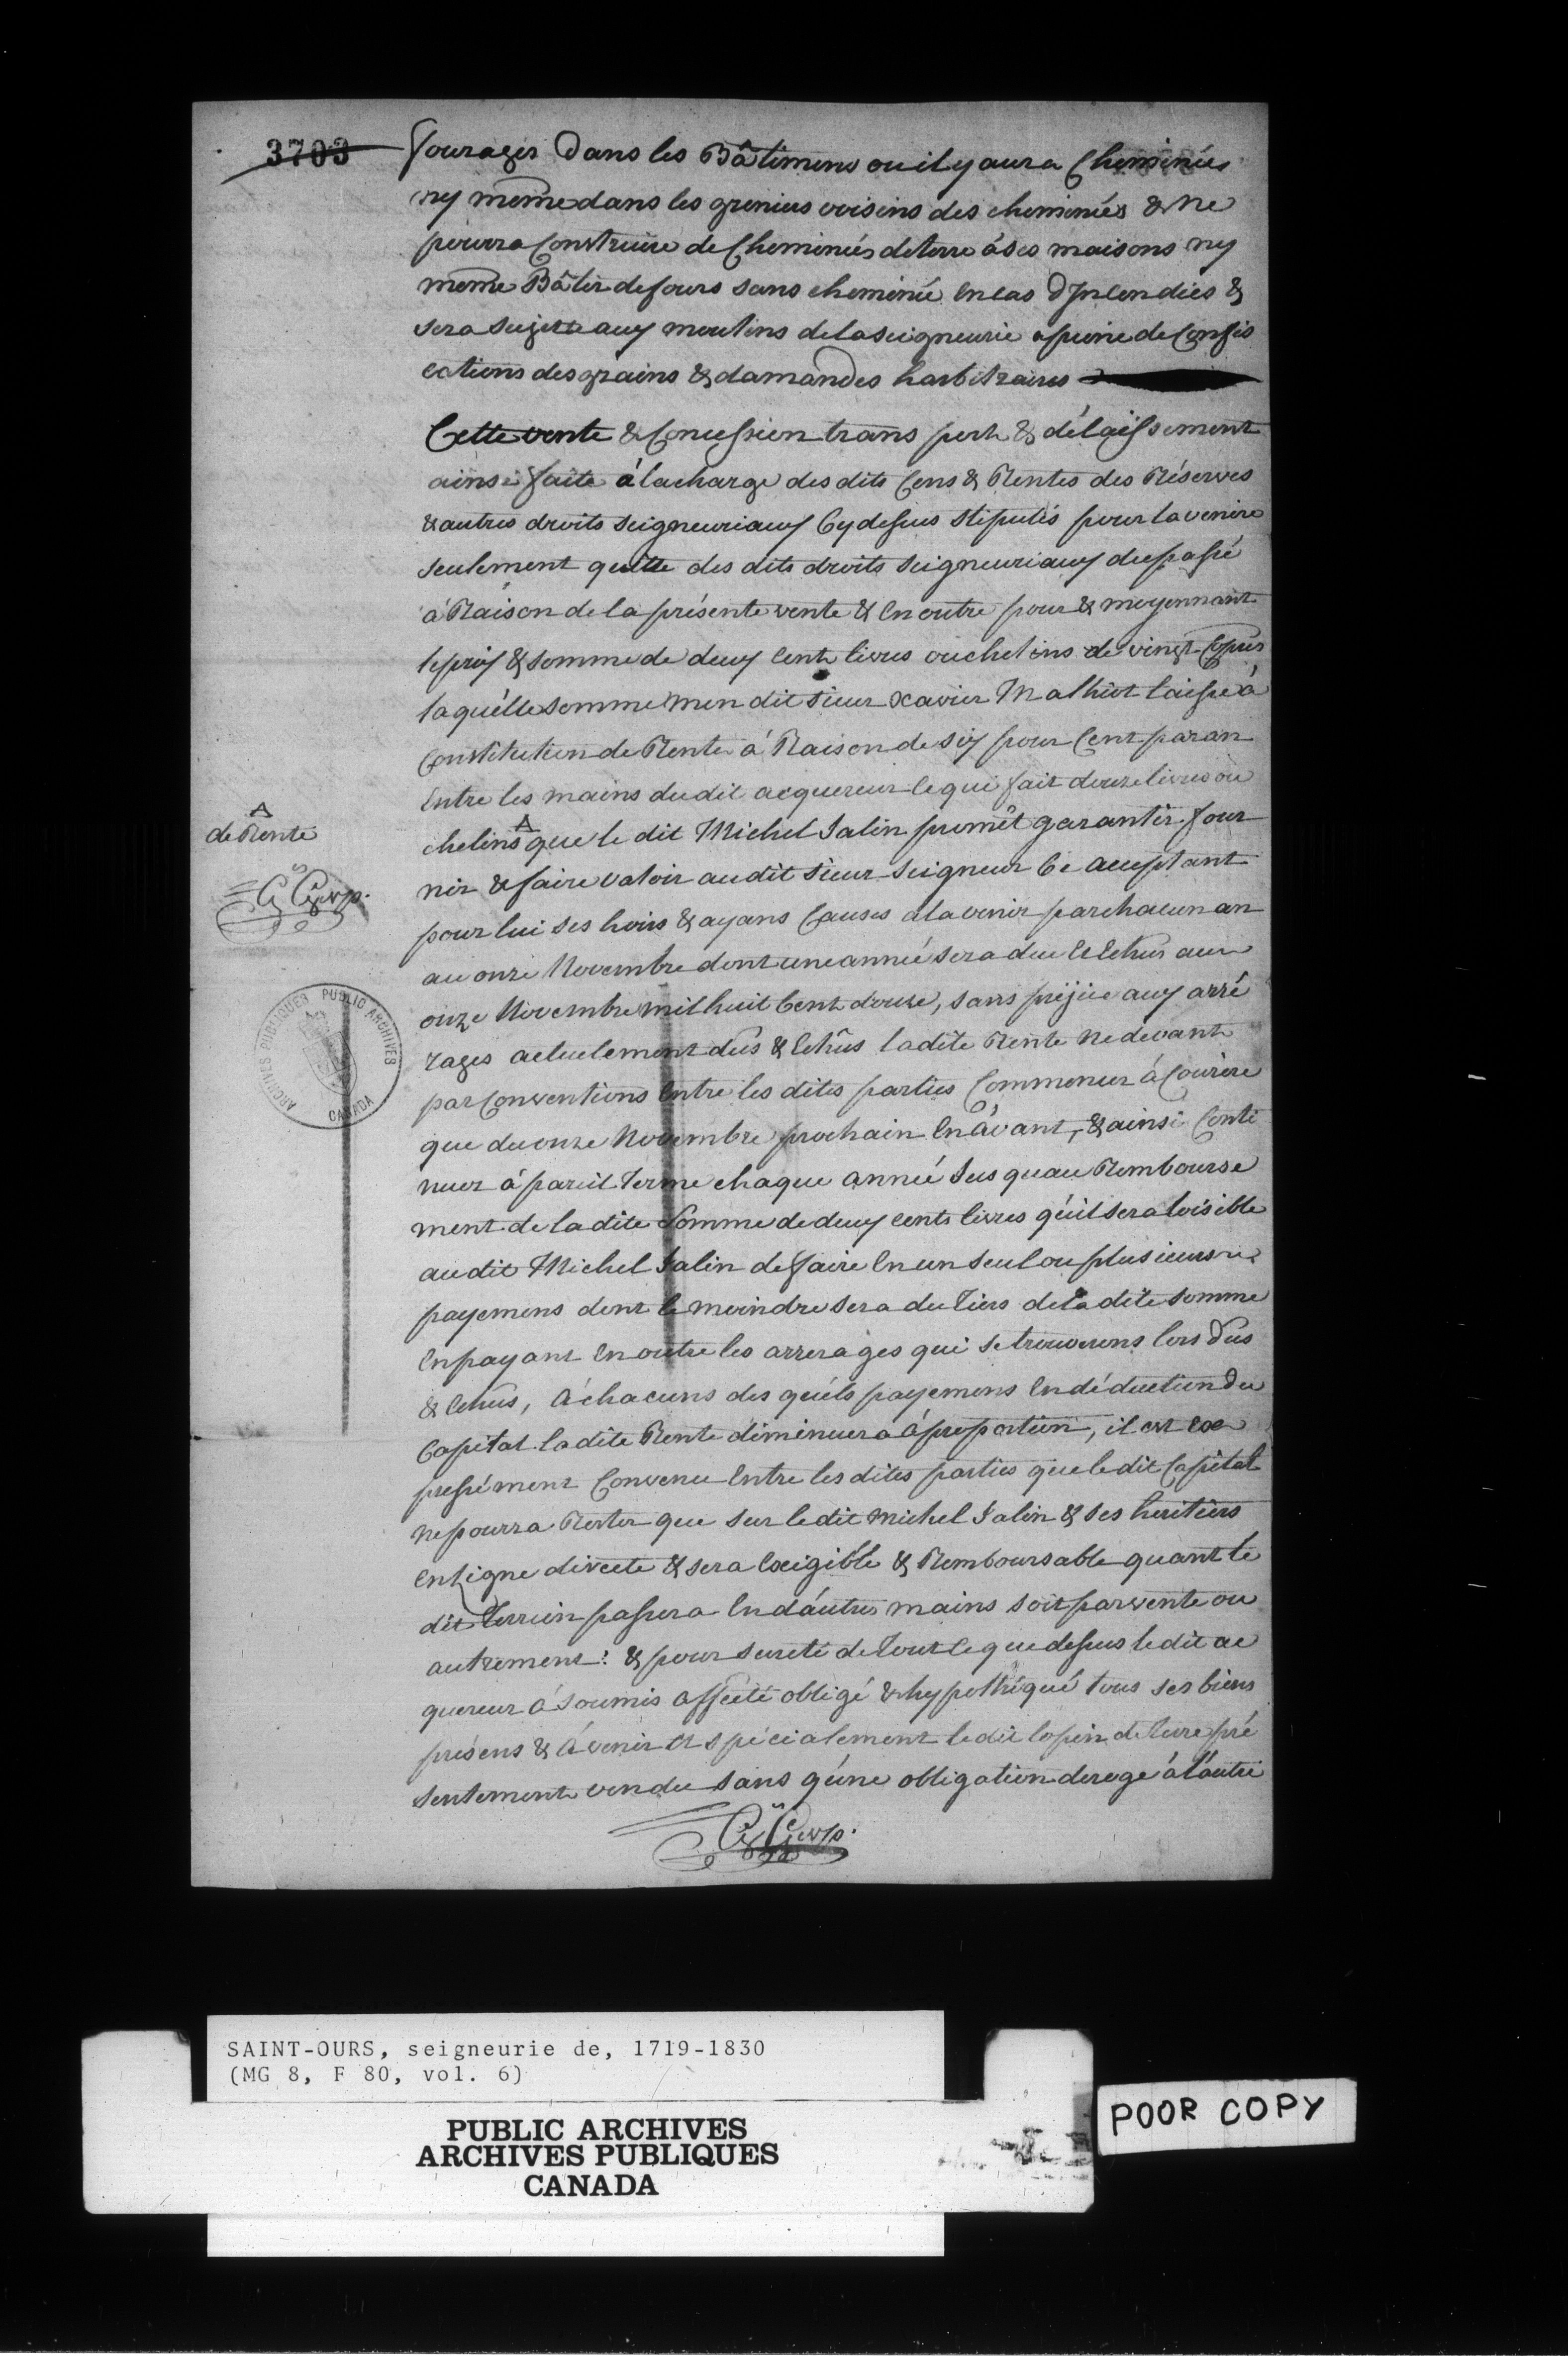 3703
fourages Dans les Bâtimens ou il y aura Cheminées
ny même dans les greniers voisins des cheminées & Ne
pourra Construire de Cheminées de terre à ses maisons ny
même Bâtir de fours sans cheminée En cas D'Incendies &
sera sujette aux moulins de la seigneurie a peine de Confis
cations des grains & damandes harbitraires
Cette vente & Concession trans port & délaissement
ainsi faite à la charge des dits Cens & Rentes des Réserves
& autres droits seigneuriaux Cy dessus stipulés pour lavenire
seulement quitte des dits droits seigneuriaux du passé
à Raison de la présente vente & En outre pour & moyennant
le prix & somme de deux Cent livres ou chelins de vingt Copres
laquelle somme mon dit sieur Xavier Malhiot laisse à
Constitution de Rente à Raison de six pour Cent par an
Entre les mains dudit acquereur Ce qui fait douze livres ou
chelins que le dit Michel Salin promêt garantir four
nir & faire valoir audit sieur seigneur Ce acceptant
pour lui ses hoirs & ayans Causes à lavenir par chacun an
au onze Novembre dont une année sera due & Echus au
onze Novembre mil huit Cent douze, sans préjice aux arré
rages actuelement dûs & Echûs la dite Rente ne devant
par Conventions Entre les dites parties Commencer à Courire
que du onze Novembre prochain En àvant, & ainsi Conti
nuer à pareil Terme chaque année Jus quau Rembourse
ment de la dite Somme de deux cents livres qu'il sera loisible
au dit Michel Salin de faire En un seul ou plusieurs
payemens dont le moindre sera du Tiers de la dite somme
En payant En outre les arrerages qui se trouverons lors dus
& Echus, à chacuns des quels payemens En déduction du
Capital la dite Rente diminuera à proportion, il est Ex
pressément Convenu Entre les dites parties que le dit Capital
ne pourra Rester que sur le dit Michel Salin & ses heritiers
En Ligne directe & sera Exigible & Remboursable quant le
dit Terrein passera En dâutres mains soit par vente ou
autrement : & pour sureté de Tout Ce que dessus le dit ac
quereur à soumis affecté obligé & hypothéqué tous ses biens
présens & à venir et spécialement le dit lopin de Terre pré
sentement vendu sans qu'une obligation deroge à l'autre
de Rente
PUBLIC ARCHIVES
ARCHIVES PUBLIQUES
CANADA
SAINT-OURS, seigneurie de, 1719-1830
(MG 8, F 80, vol. 6)
PUBLIC ARCHIVES
ARCHIVES PUBLIQUES
CANADA
POOR COPY